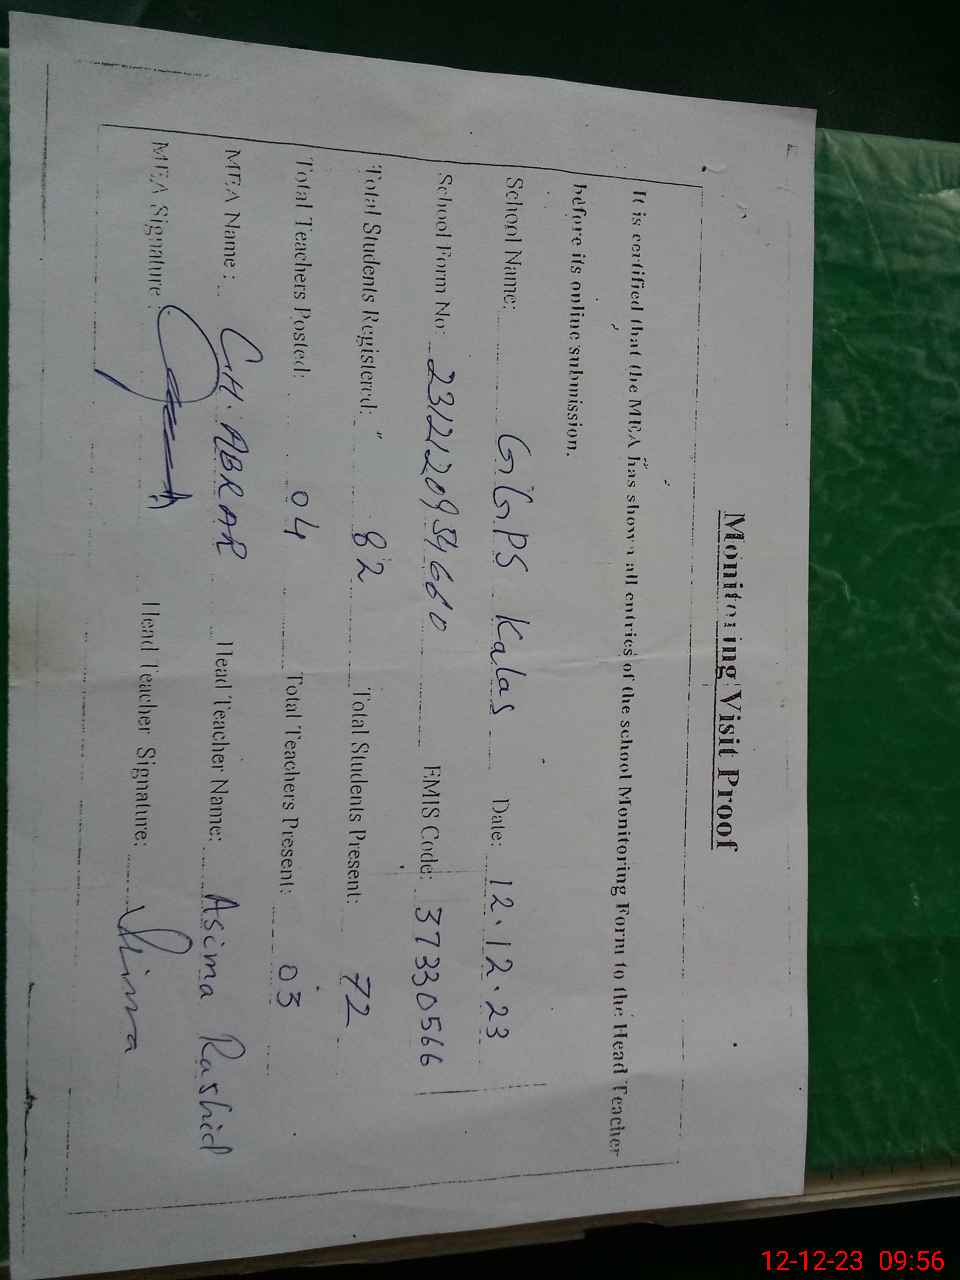 Monitoring Visit Proof
It is certified that the MEA has shown all entries of the school Monitoring Form to the Head Teacher
before its online submission.
School Name: G.G.PS Kalas Date: 12.12.23
School Form No: EMIS Code: 37330566
Total Students Registered: 82 Total Students Present: 72
Total Teachers Posted: 04 Total Teachers Present: 03
MEA Name: CH. ABRAR Head Teacher Name: Asima Rashid
MEA Signature: Head Teacher Signature:
12-12-23 09:56